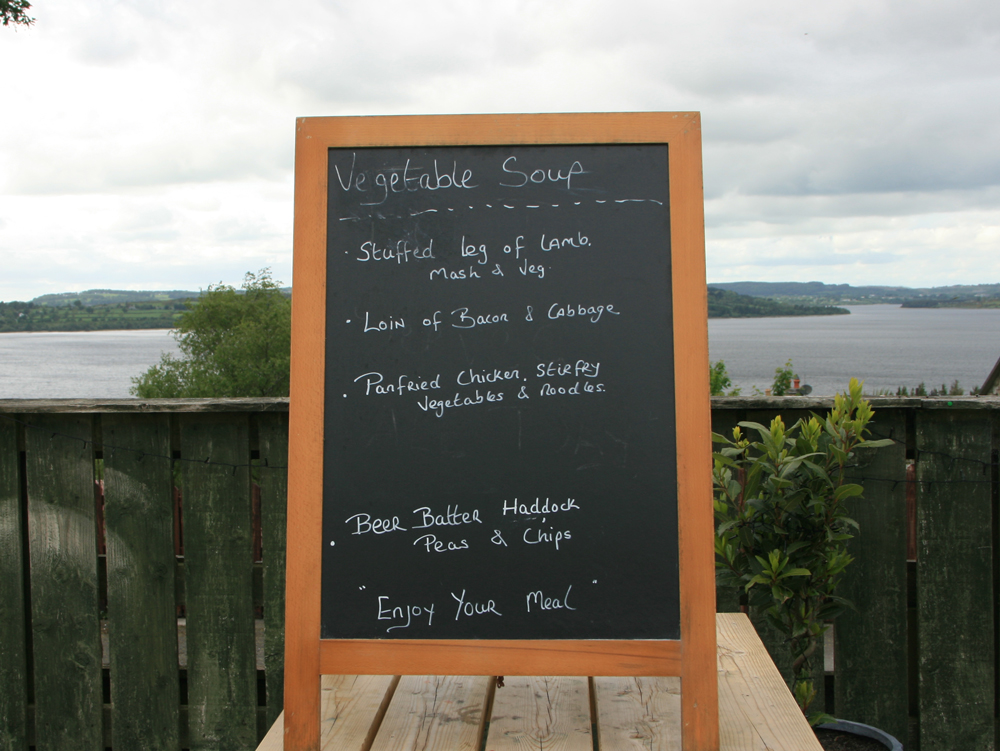 Vegetable Soup
· Stuffed Leg of Lamb.
Mash & Veg.
· Loin of Bacon & Cabbage
· Panfried Chicken. Stirfry
Vegetables & Noodles.
· Beer Batter Haddock
Peas & Chips
" Enjoy Your Meal "